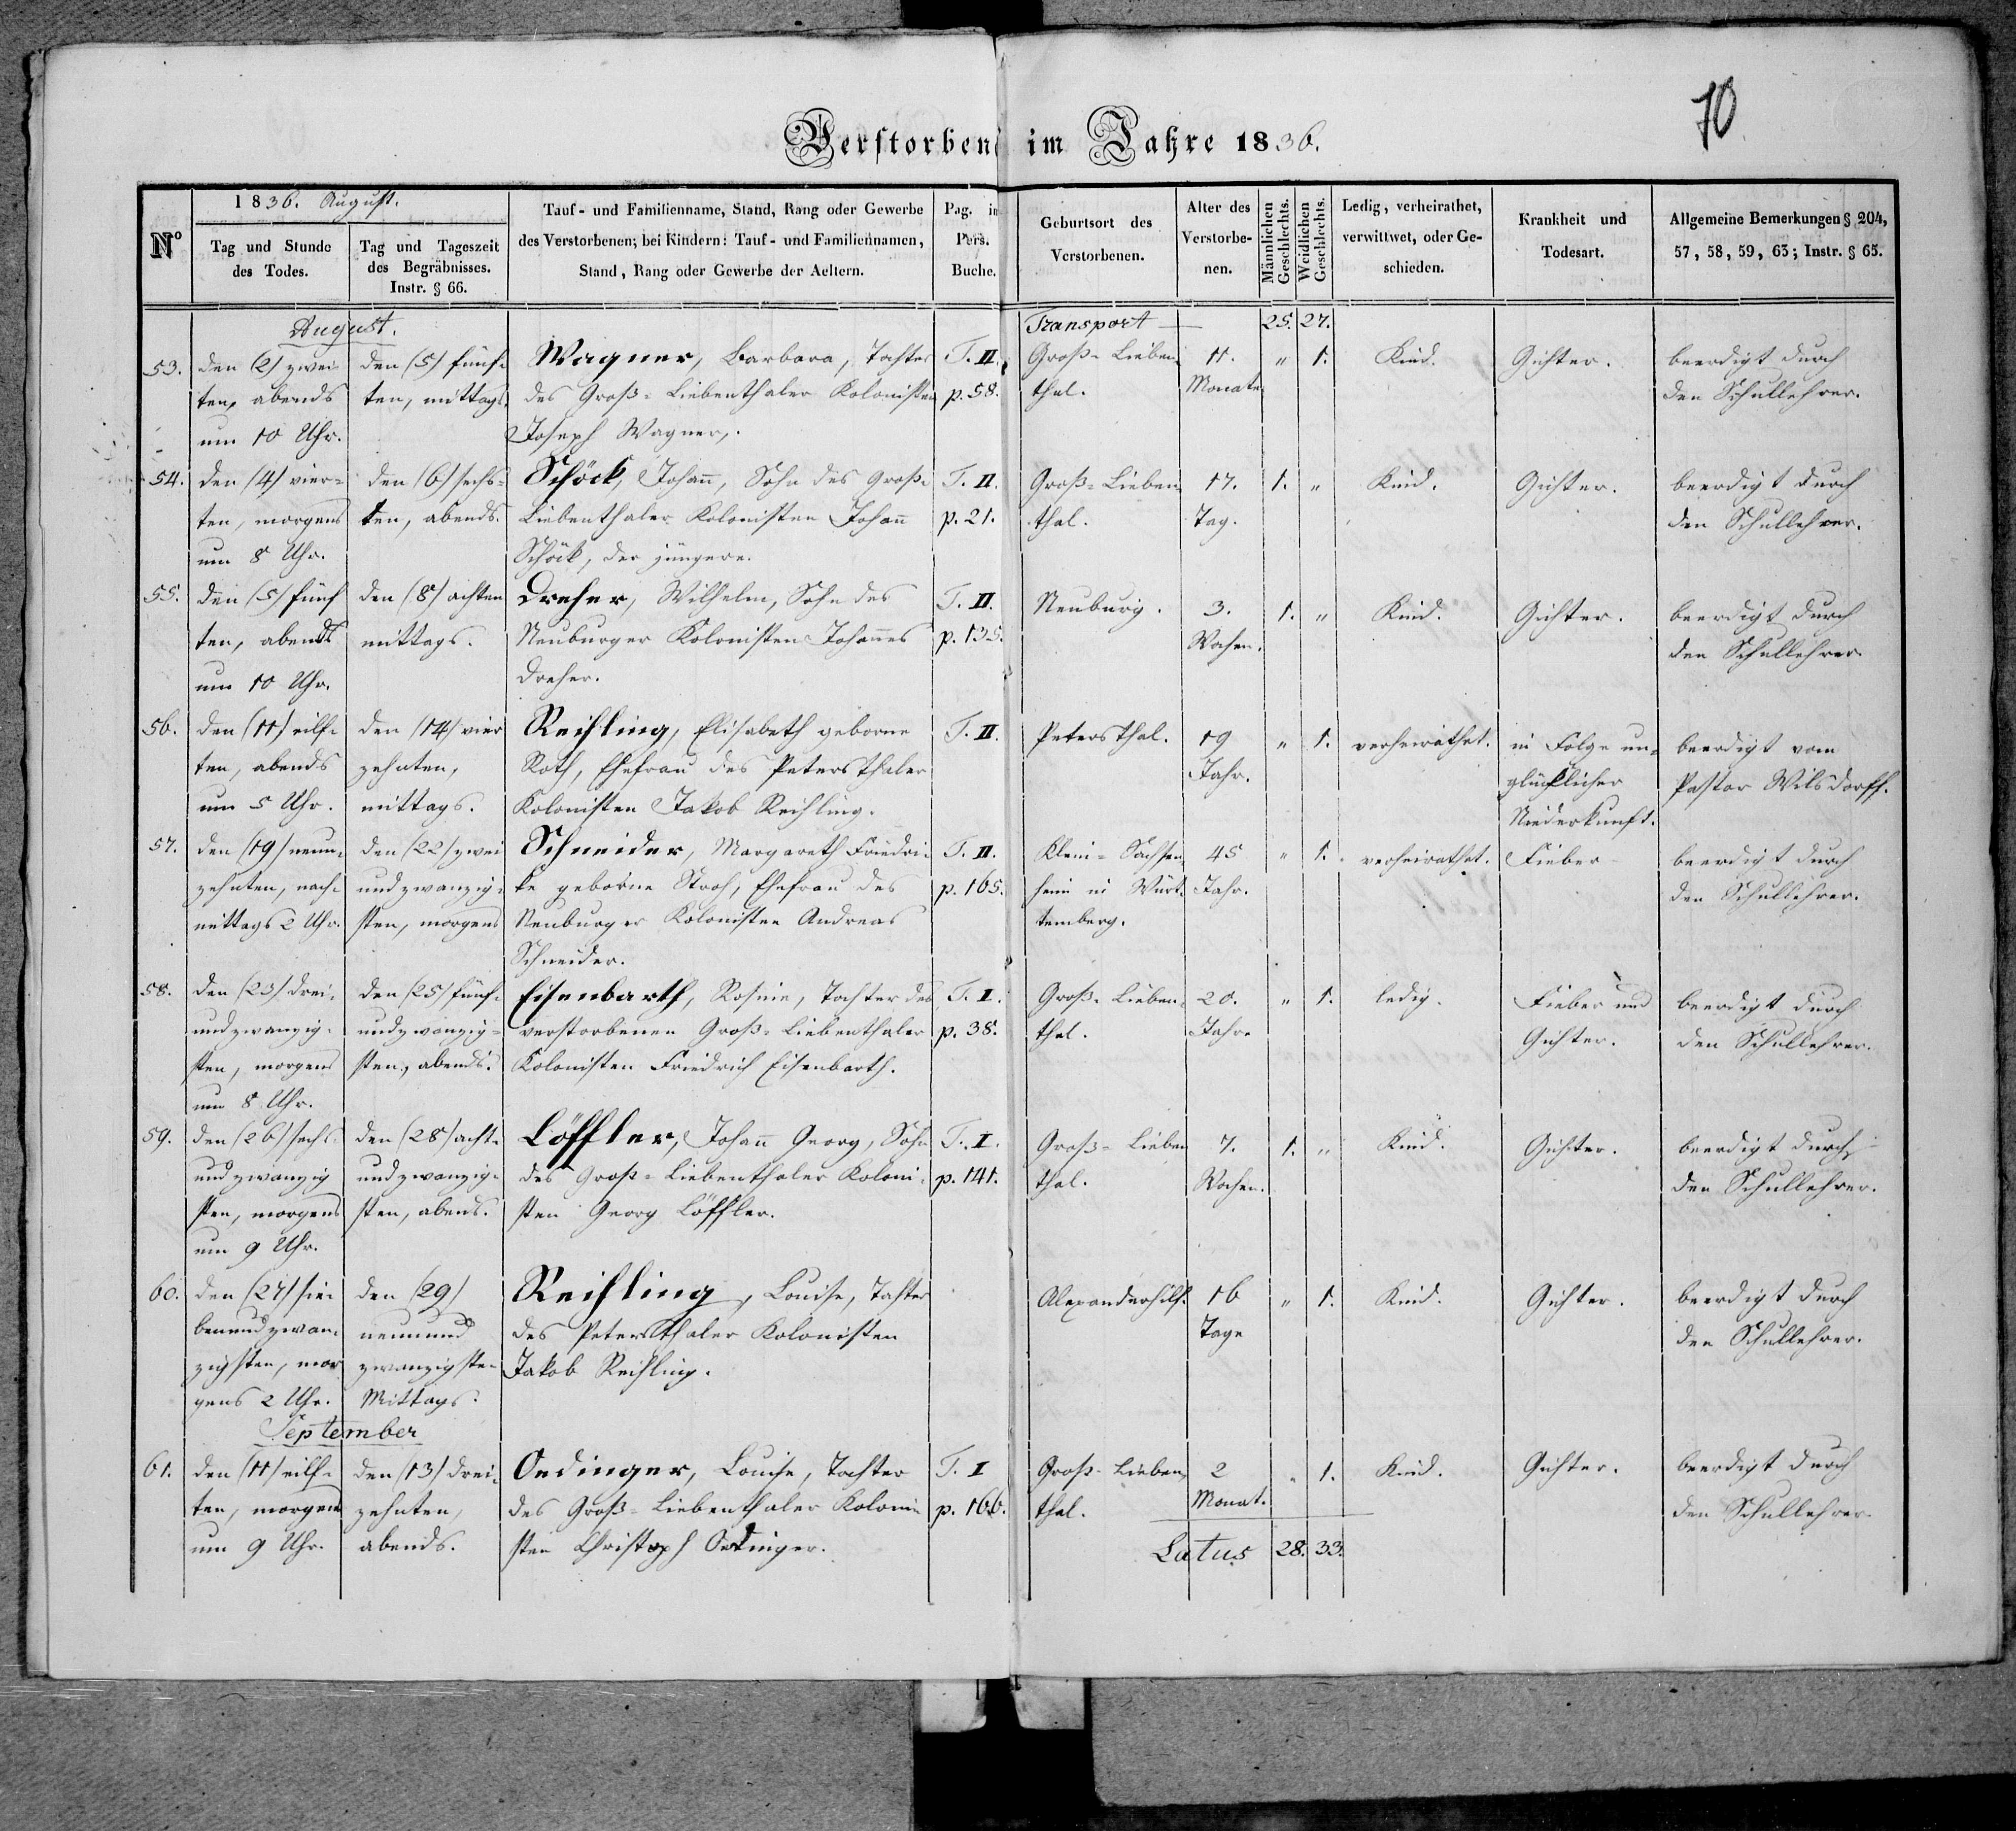 70
Verstorbene im Jahre 1836.
N°
1836. August.
Tag und Stunde
des Todes.
Tag und Tageszeit
des Begräbnisses.
Instr. § 66.
Tauf- und Familienname, Stand, Rang oder Gewerbe
des Verstorbenen; bei Kindern: Tauf- und Familiennamen,
Stand, Rang oder Gewerbe der Aeltern.
Pag. in
Pers.
Buche.
Geburtsort des
Verstorbenen.
Alter des
Verstorbe-
nen.
Männlichen
Geschlechts.
Weiblichen
Geschlechts.
Ledig, verheirathet,
verwittwet, oder Ge-
schieden.
Krankheit und
Todesart.
Allgemeine Bemerkungen § 204,
57, 58, 59, 63; Instr. § 65.
August.
Transport — 25. 27.
53.
den (2) zwei-
ten, abends
um 10 Uhr.
den (5) fünf-
ten, mittags.
Wagner, Barbara, Tochter
des Groß-Liebenthaler Kolonisten
Joseph Wagner.
T. II.
p. 58.
Groß-Lieben
thal.
11.
Monate
" 1.
Kind.
Gichter.
beerdigt durch
den Schullehrer.
54.
den (4) vier-
ten, morgens
um 8 Uhr.
den (6) sechs-
ten, abends.
Schöck, Johañ, Sohn des Groß-
Liebenthaler Kolonisten Johañ
Schöck, der jüngere.
T. II.
p. 21.
Groß-Lieben
thal.
17.
Tag.
1. "
Kind.
Gichter.
beerdigt durch
den Schullehrer.
55.
den (5) fünf
ten, abends
um 10 Uhr.
den (8) achten
mittags.
Dreher, Wilhelm, Sohn des
Neuburger Kolonisten Johañes
Dreher.
T. II.
p. 135.
Neuburg.
3.
Wochen.
1. "
Kind.
Gichter.
beerdigt durch
den Schullehrer.
56.
den (11) eilf-
ten, abends
um 5 Uhr.
den (14) vier
zehnten,
mittags.
Reichling, Elisabeth geborne
Roth, Ehefrau des Petersthaler
Kolonisten Jakob Reichling.
T. II.
Petersthal.
19
Jahr.
" 1.
verheirathet.
in Folge un-
glücklicher
Niederkunft.
beerdigt vom
Pastor Wilsdorff.
57.
den (19) neun-
zehnten, nach-
mittags 2 Uhr.
den (22) zwei
undzwanzig-
sten, morgens
Schneider, Margareth Friedri-
ke geborne Stroh, Ehefrau des
Neuburger Kolonisten Andreas
Schneider.
T. II.
p. 165.
Klein-Sachsen
heim in Würt-
temberg.
45
Jahr.
" 1.
verheirathet.
Fieber
beerdigt durch
den Schullehrer.
58.
den (23) drei-
undzwanzig-
sten, morgens
um 8 Uhr.
den (25) fünf-
undzwanzig-
sten, abends.
Eisenbarth, Rosine, Tochter des
verstorbenen Groß-Liebenthaler
Kolonisten Friedrich Eisenbarth.
T. I.
p. 38.
Groß-Lieben-
thal.
20.
Jahre
" 1.
ledig.
Fieber und
Gichter.
beerdigt durch
den Schullehrer.
59.
den (26) sechs-
undzwanzig
sten, morgens
um 9 Uhr.
den (28) acht-
undzwanzig-
sten, abens.
Löffler, Johañ Georg, Sohn
des Groß-Liebenthaler Koloni-
sten Georg Löffler.
T. I.
p. 141.
Groß-Lieben
thal.
7.
Wochen.
1. "
Kind.
Gichter.
beerdigt durch
den Schullehrer.
60.
den (27) sie-
benundzwan-
zigsten, mor
gens 2 Uhr.
den (29)
neunund
zwanzigsten
Mittags.
Reichling, Louise, Tochter
des Petersthaler Kolonisten
Jakob Reichling.
Alexanderhilf.
16
Tage
" 1.
Kind.
Gichter.
beerdigt durch
den Schullehrer.
September
61.
den (11) eilf-
ten, morgens
um 9 Uhr.
den (13) drei-
zehnten,
abends.
Oedinger, Louise, Tochter
des Groß-Liebenthaler Koloni
sten Christoph Oedinger.
T. I
p. 166.
Groß-Lieben
thal.
2
Monat.
" 1.
Kind.
Gichter.
beerdigt durch
den Schullehrer.
Latus 28. 33.